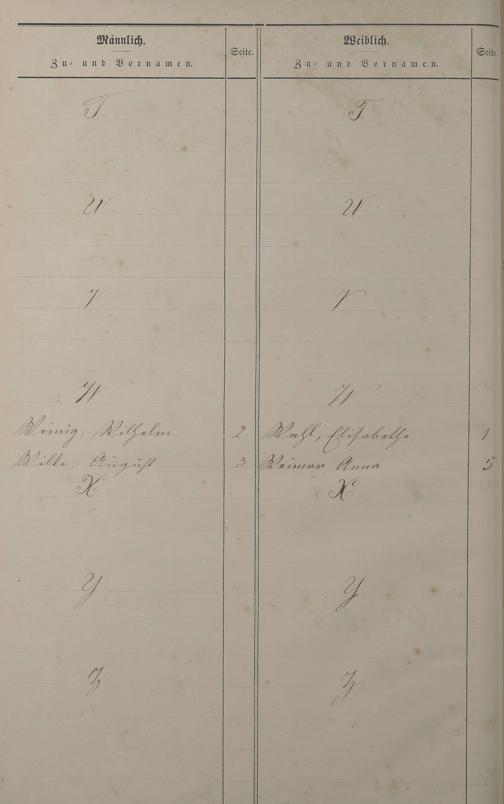 Männlich.
Zu- und Vornamen.
Seite.
T
U
V
W
Weinig, Wilhelm 2
Wilke, August 3
X
Y
Z
Weiblich.
Zu- und Vornamen.
Seite.
T
U
V
W
Wahl, Elisabethe 1
Weimer Anna 5
X
Y
Z